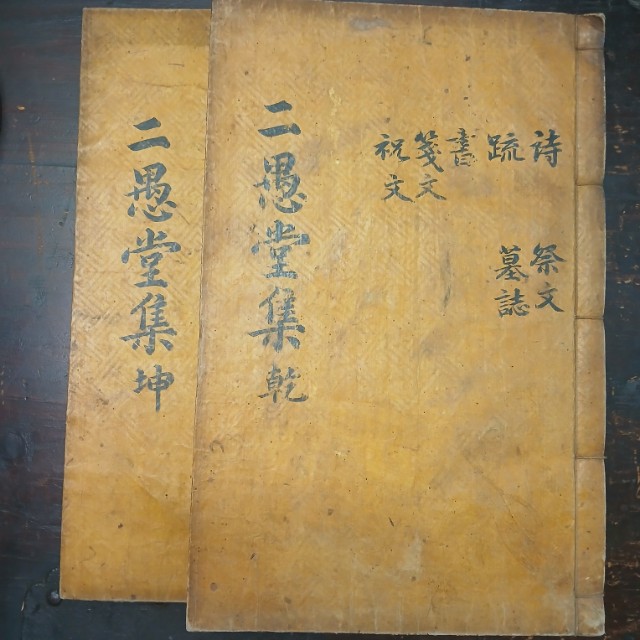 二愚堂集 乾
詩
疏
書
箋文
祝文
祭文
墓誌
二愚堂集 坤